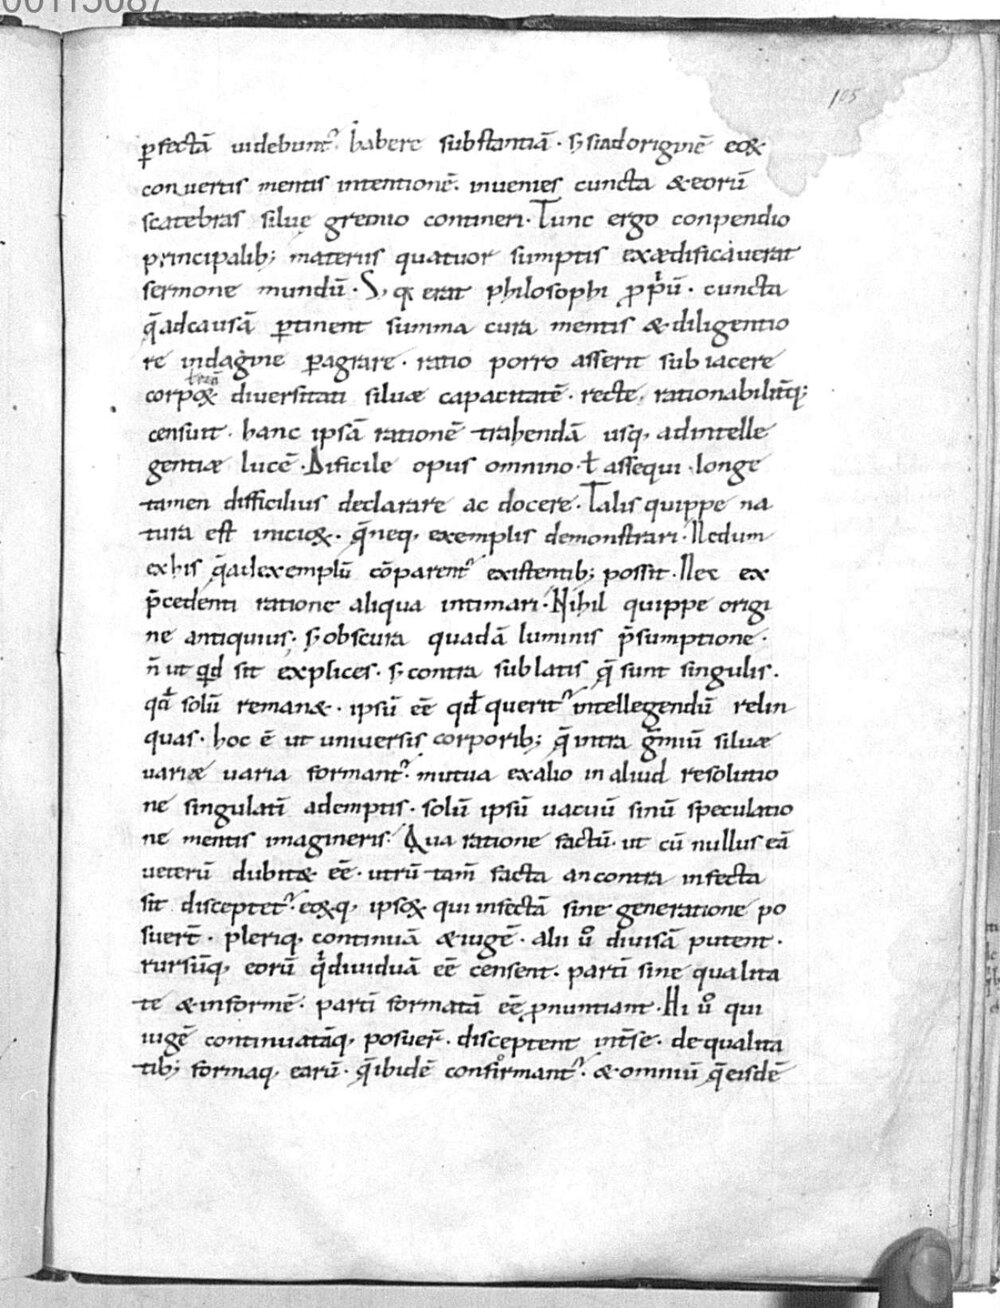 00115087
105
ꝑfectā uidebunt᷒ habere substantiā · s; si ad originē eoꝝ
conuertis mentis intentionē. inuenies cuncta & eorū
scatebras siluę gremio contineri · Tunc ergo conpendio
principalib; materiis quatuor sumptis exædificauerat
sermone mundū · S; qꝫ erat philosophi ꝓpriū · cuncta
q̄ ad causā ꝑtinent summa cura mentis & diligentio
re indagine ꝑagrare · ratio porro asserit subiacere
corpoꝝ diuersitati siluæ capacitatē · recte, rationabilit̄q;
censuit · hanc ipsā rationē trahendā usq, ad intelle
gentiæ lucē · Dificile opus omnino · ł assequi · longe
tamen difficilius declarare ac docere · Talis quippe na
tura est inicioꝝ · q̄ neq, exemplis demonstrari · Nedum
ex his q̄ ad exemplū cōparent᷒ existentib; possit · Nec ex
p̄cedenti ratione aliqua intimari · Nihil quippe origi
ne antiquius · s; obscura quadā luminis p̄sumptione ·
n̄ ut qd sit explices · s; contra sublatis q̄ sunt singulis ·
qđ solū remanæ · ipsū eē qđ querit᷒ intellegendū relin
quas · hoc ē ut uniuersis corporib; q̄ intra gremiū siluæ
uariæ uaria formant᷒ · mutua ex alio in aliud resolutio
ne singulatī ademptis · solū ipsū uacuū sinū speculatio
ne mentis imagineris · Qua ratione factū · ut cū nullus eā
ueterū dubitæ eē · utrū tam̄ facta an contra infecta
sit disceptet᷒ · eoꝝq, ipsoꝝ qui infectā sine generatione po
suert̄ · pleriq, continuā & iugē · alii ů diuisā putent ·
rursūq, eorū q diuiduā eē censent · partī sine qualita
te & informē · partī formatā eē ꝓnuntiant · Hi ů qui
iugē continuatāq, posuer̄ · disceptent int̄ se · de qualita
tib; formaq, earū · q̄ ibidē confirmant᷒ · & omniū q̄ eisdē